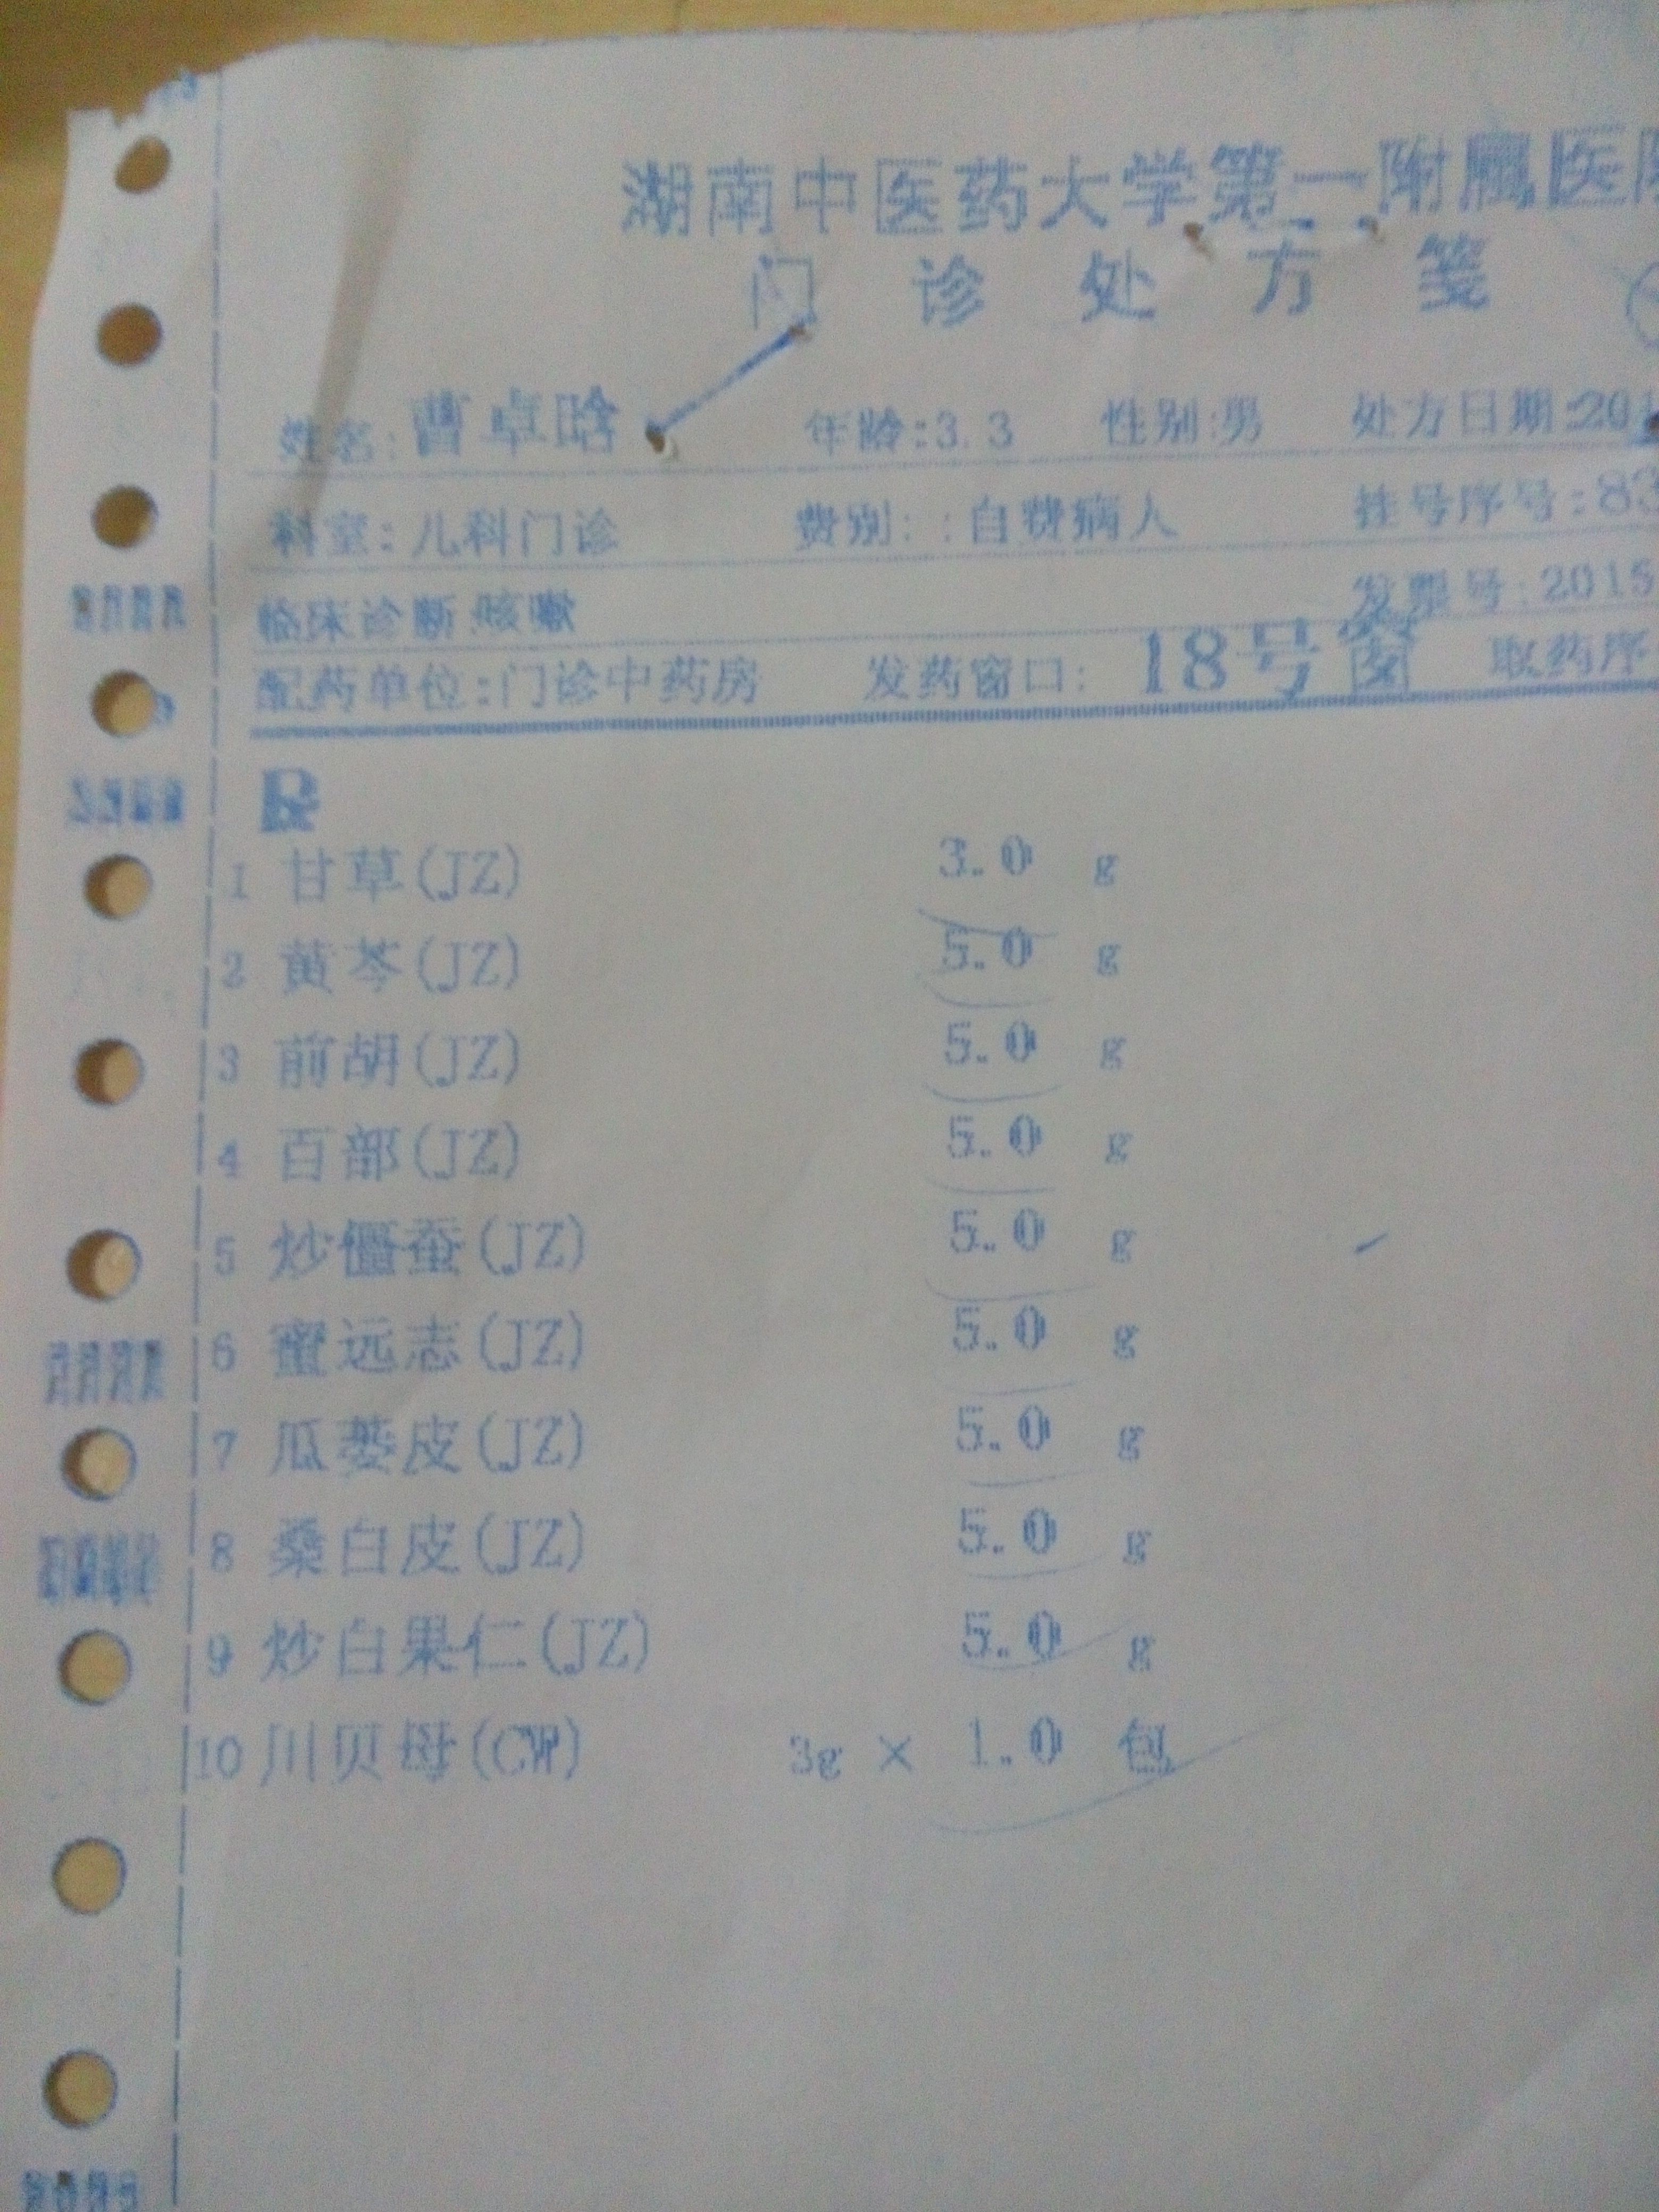 湖南中医药大学第二附属医
门诊处方笺
姓名:曹卓晗 年龄:3.3 性别:男 处方日期:201
科室:儿科门诊 费别::自费病人 挂号序号:83
临床诊断:咳嗽 发票号:2015
配药单位:门诊中药房 发药窗口: 18号窗 取药序
R
1 甘草(JZ) 3.0 g
2 黄芩(JZ) 5.0 g
3 前胡(JZ) 5.0 g
4 百部(JZ) 5.0 g
5 炒僵蚕(JZ) 5.0 g
6 蜜远志(JZ) 5.0 g
7 瓜蒌皮(JZ) 5.0 g
8 桑白皮(JZ) 5.0 g
9 炒白果仁(JZ) 5.0 g
10 川贝母(CW) 3g × 1.0 包